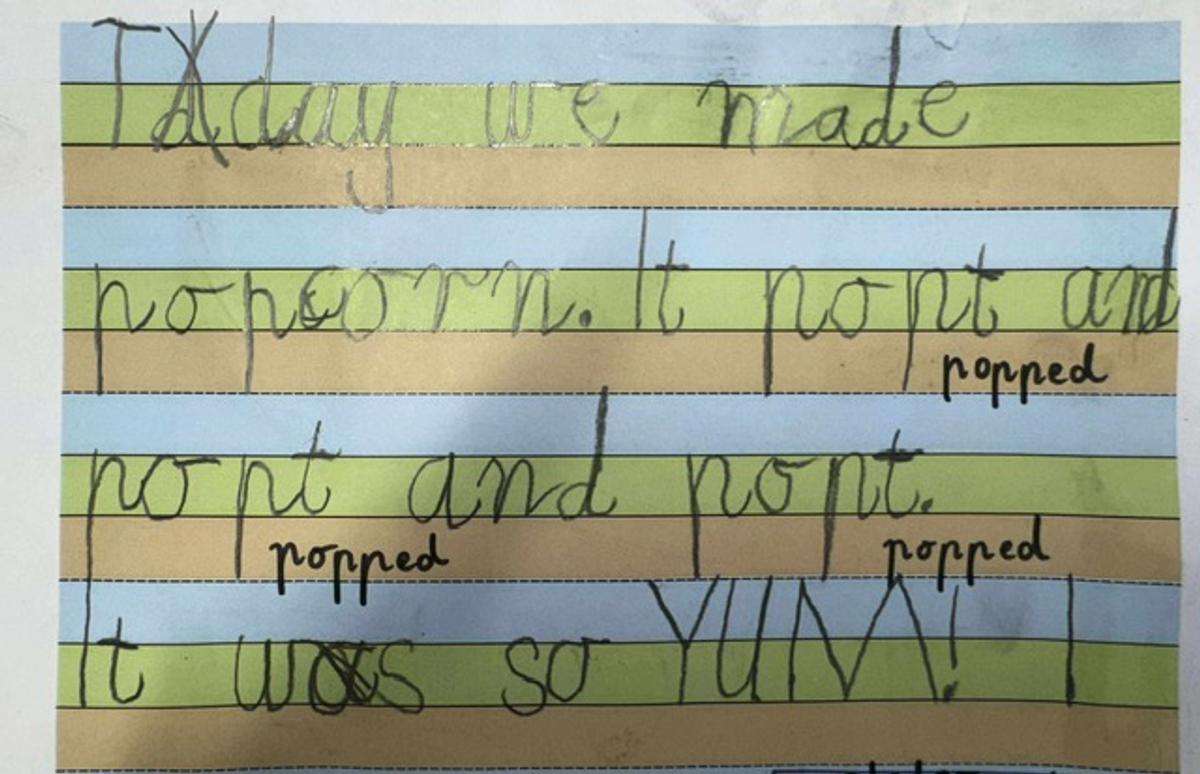 Today we made
popcorn. It popt and
popped
popt and popt.
popped popped
It was so YUM! I